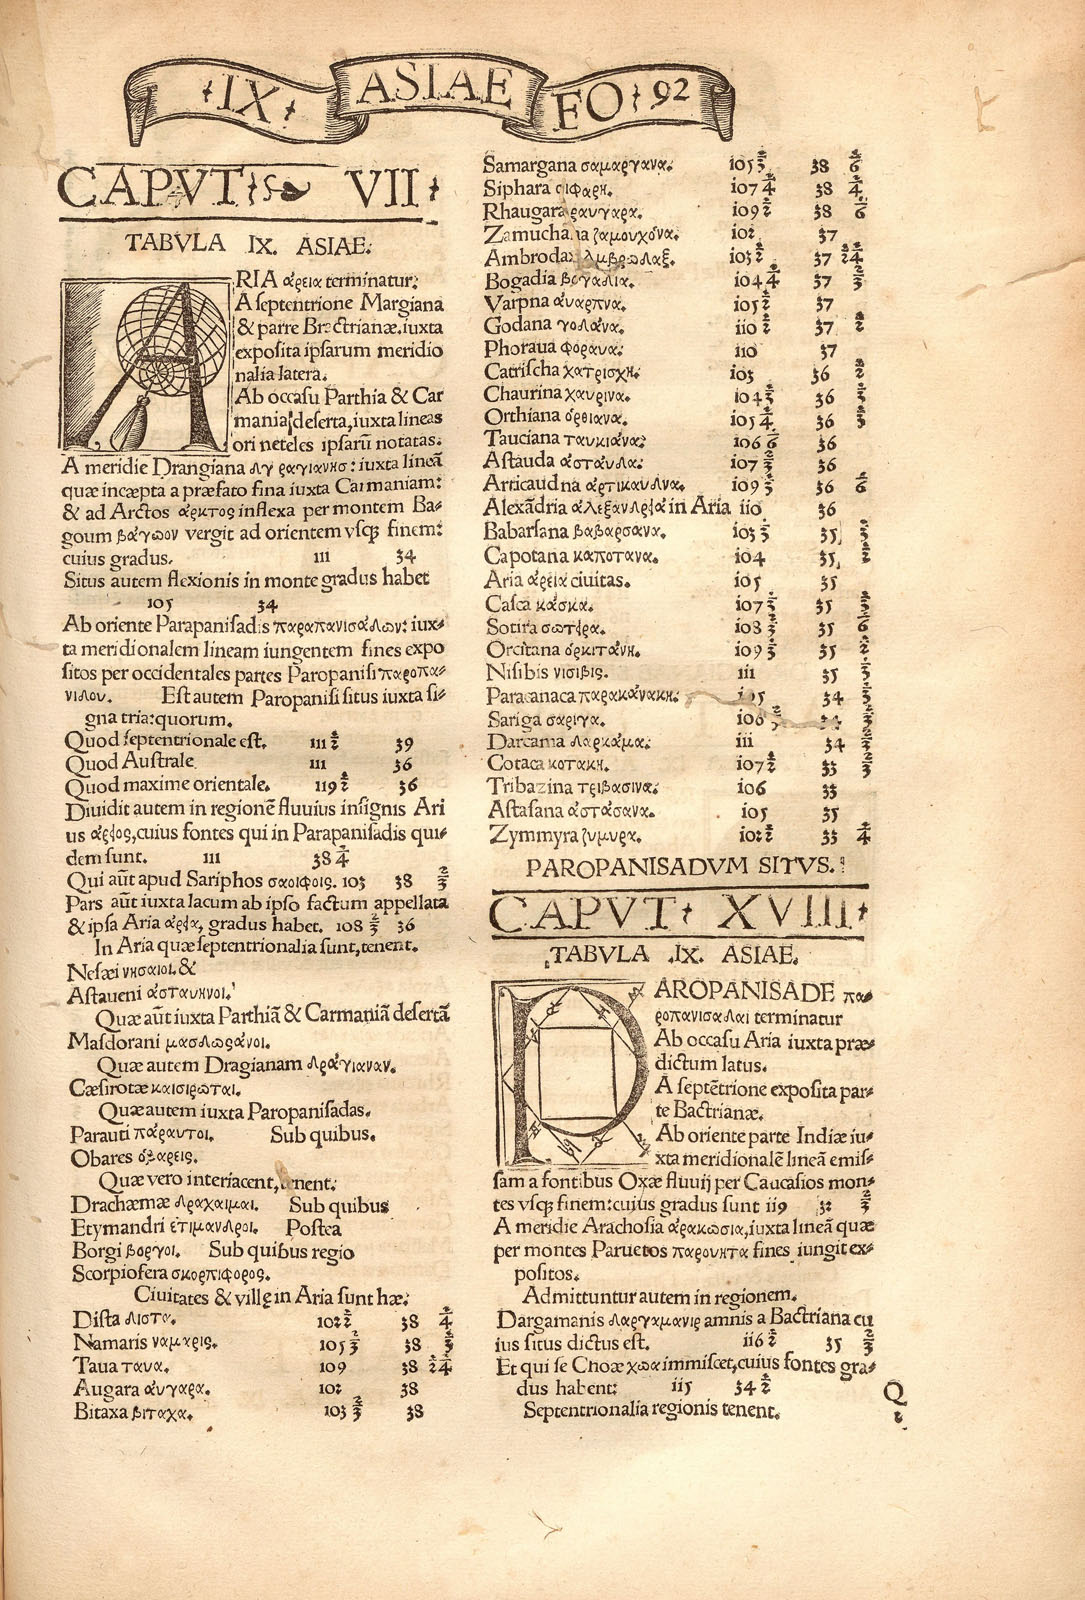 IX ASIAE FO 92
CAPVT VII
TABVLA IX. ASIAE.
ARIA ἀρεια terminatur:
A septentrione Margiana
& parte Bactrianæ, iuxta
exposita ipsarum meridio
nalia latera.
Ab occasu Parthia & Car
mania deserta, iuxta lineas
ori neteles ipsarū notatas.
A meridie Drangiana iuxta lineā
quæ incæpta a præfato fina iuxta Carmaniam:
& ad Arctos ἀρκτος inflexa per montem Ba-
goum βαγωον vergit ad orientem vsq; finem:
cuius gradus. 111 34
Situs autem flexionis in monte gradus habet
105 34
Ab oriente Parapanisadis παραπανισαδων: iux-
ta meridionalem lineam iungentem fines expo
sitos per occidentales partes Paropanisi παροπα-
νισου. Est autem Paropanisi situs iuxta si-
gna tria: quorum.
Quod septentrionale est. 111 ½ 39
Quod Australe 111 36
Quod maxime orientale. 119 ½ 36
Diuidit autem in regionē fluuius insignis Ari
us cuius fontes qui in Parapanisadis qui-
dem sunt. 111 38 ¼
Qui aūt apud Sariphos σαριφοις. 103 38 ⅔
Pars aūt iuxta lacum ab ipso factum appellata
& ipsa Aria gradus habet. 108 ⅔ 36
In Aria quæ septentrionalia sunt, tenent.
Nesæi νησαιοι. &
Astaueni ἀσταυηνοι.
Quæ aūt iuxta Parthiā & Carmaniā desertā
Masdorani μασδωρανοι.
Quæ autem Dragianam δραγιαναν.
Cæsirotæ καισιρωται.
Quæ autem iuxta Paropanisadas.
Parauti παραυτοι. Sub quibus.
Obares ὀβαρεις.
Quæ vero interiacent, tenent:
Drachæmæ δραχαιμαι. Sub quibus
Etymandri ἐτιμανδροι. Postea
Borgi βοργοι. Sub quibus regio
Scorpiofera σκορπιφορος.
Ciuitates & ville in Aria sunt hæ:
Dista διστα. 102 ½ 38 ¼
Namaris ναμαρις. 105 ⅔ 38 ⅔
Taua ταυα. 109 38 ½¼
Augara ἀυγαρα. 102 38
Bitaxa βιταχα. 103 ⅔ 38
Samargana σαμαργανα. 105 ⅔ 38 ⅙
Siphara σιφαρη. 107 ¼ 38 ¼
Rhaugara ραυγαρα. 109 ½ 38 ⅙
Zamuchana ζαμουχονα. 102 37
Ambrodax ἀμβρωδαξ. 103 ½ 37 ½¼
Bogadia βογαδια. 104 ¼ 37 ⅔
Varpna ἀυαρπνα. 105 ½ 37
Godana γοδανα. 110 ½ 37 ½
Phoraua φοραυα. 110 37
Catrischa χατρισχη. 103 36 ½
Chaurina χαυρινα. 104 ⅓ 36 ⅓
Orthiana ὀρθιανα. 105 ¼ 36 ⅓
Tauciana ταυκιανα: 106 ⅙ 36
Astauda ἀσταυδα: 107 ⅔ 36
Articaudna ἀρτικαυδνα. 109 ⅓ 36 ⅙
Alexādria in Aria 110 36
Babarsana βαβαρσανα. 103 ⅓ 35 ⅓
Capotana καποτανα. 104 35 ½
Aria ἀρεια ciuitas. 105 35
Casca κασκα. 107 ⅓ 35 ⅓
Sotira 108 ⅔ 35 ⅙
Orcitana ὀρκιτανη. 109 ⅓ 35 ½
Nisibis νισιβις. 111 35 ⅓
Paracanaca παρακανακη: 105 34 ⅓
Sariga σαριγα. 106 ⅔ 34 ⅔
Darcama δαρκαμα: 111 34 ⅔
Cotaca κοτακη. 107 ½ 33 ⅔
Tribazina τριβασινα. 106 33
Astasana ἀστασανα. 105 35
Zymmyra ζυμυρα. 102 ½ 33 ¼
PAROPANISADVM SITVS.
CAPVT XVIII
TABVLA IX. ASIAE.
PAROPANISADE πα-
ροπανισαδαι terminatur
Ab occasu Aria iuxta præ-
dictum latus.
A septētrione exposita par-
te Bactrianæ.
Ab oriente parte Indiæ iu-
xta meridionalē lineā emis-
sam a fontibus Oxæ fluuij per Caucasios mon-
tes vsq; finem: cuius gradus sunt 119 32 ⅔
A meridie Arachosia ἀρακωσια, iuxta lineā quæ
per montes Paruetos παρουητα fines iungit ex-
positos.
Admittuntur autem in regionem.
Dargamanis δαργαμανις amnis a Bactriana cu
ius situs dictus est. 116 ½ 35 ⅔
Et qui se Choæ χωα immiscet, cuius fontes gra-
dus habent: 115 34 ½
Septentrionalia regionis tenent.
Q
2